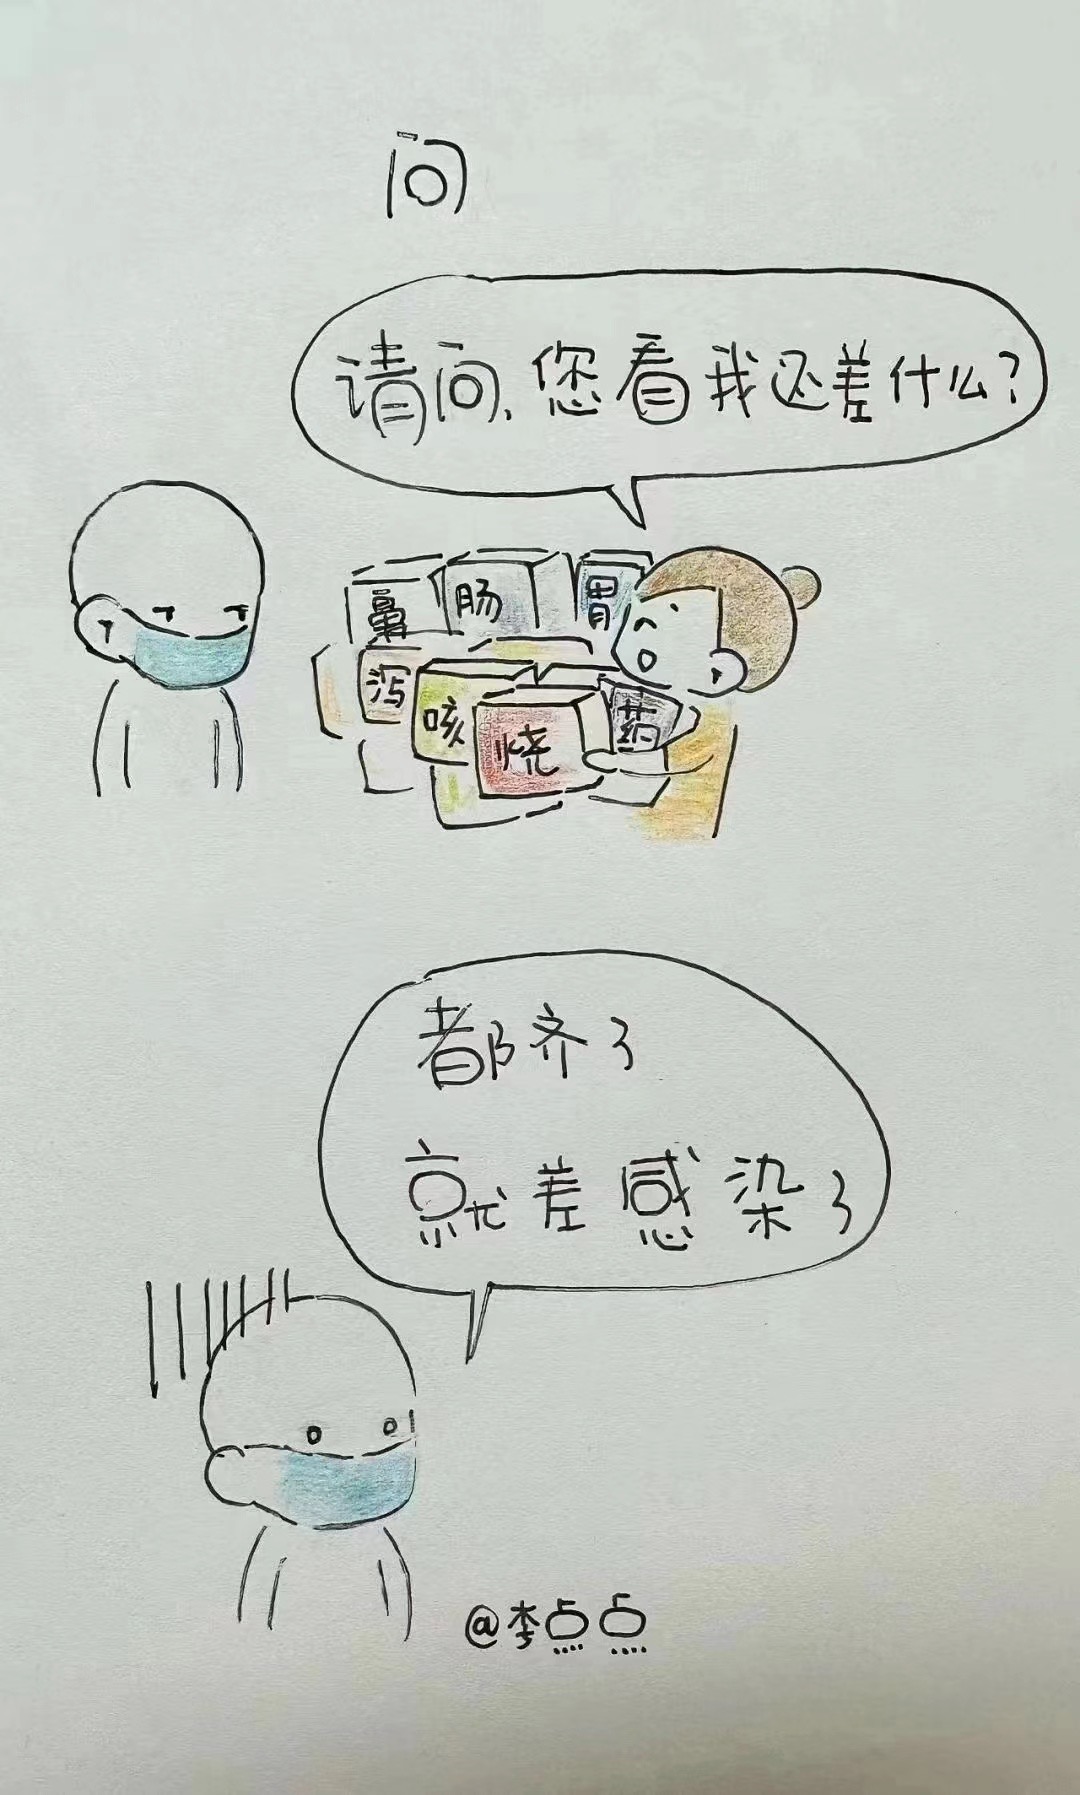 问
请问、您看我还差什么?
鼻
肠
胃
泻
咳
烧
药
都齐了
就差感染了
@李点点